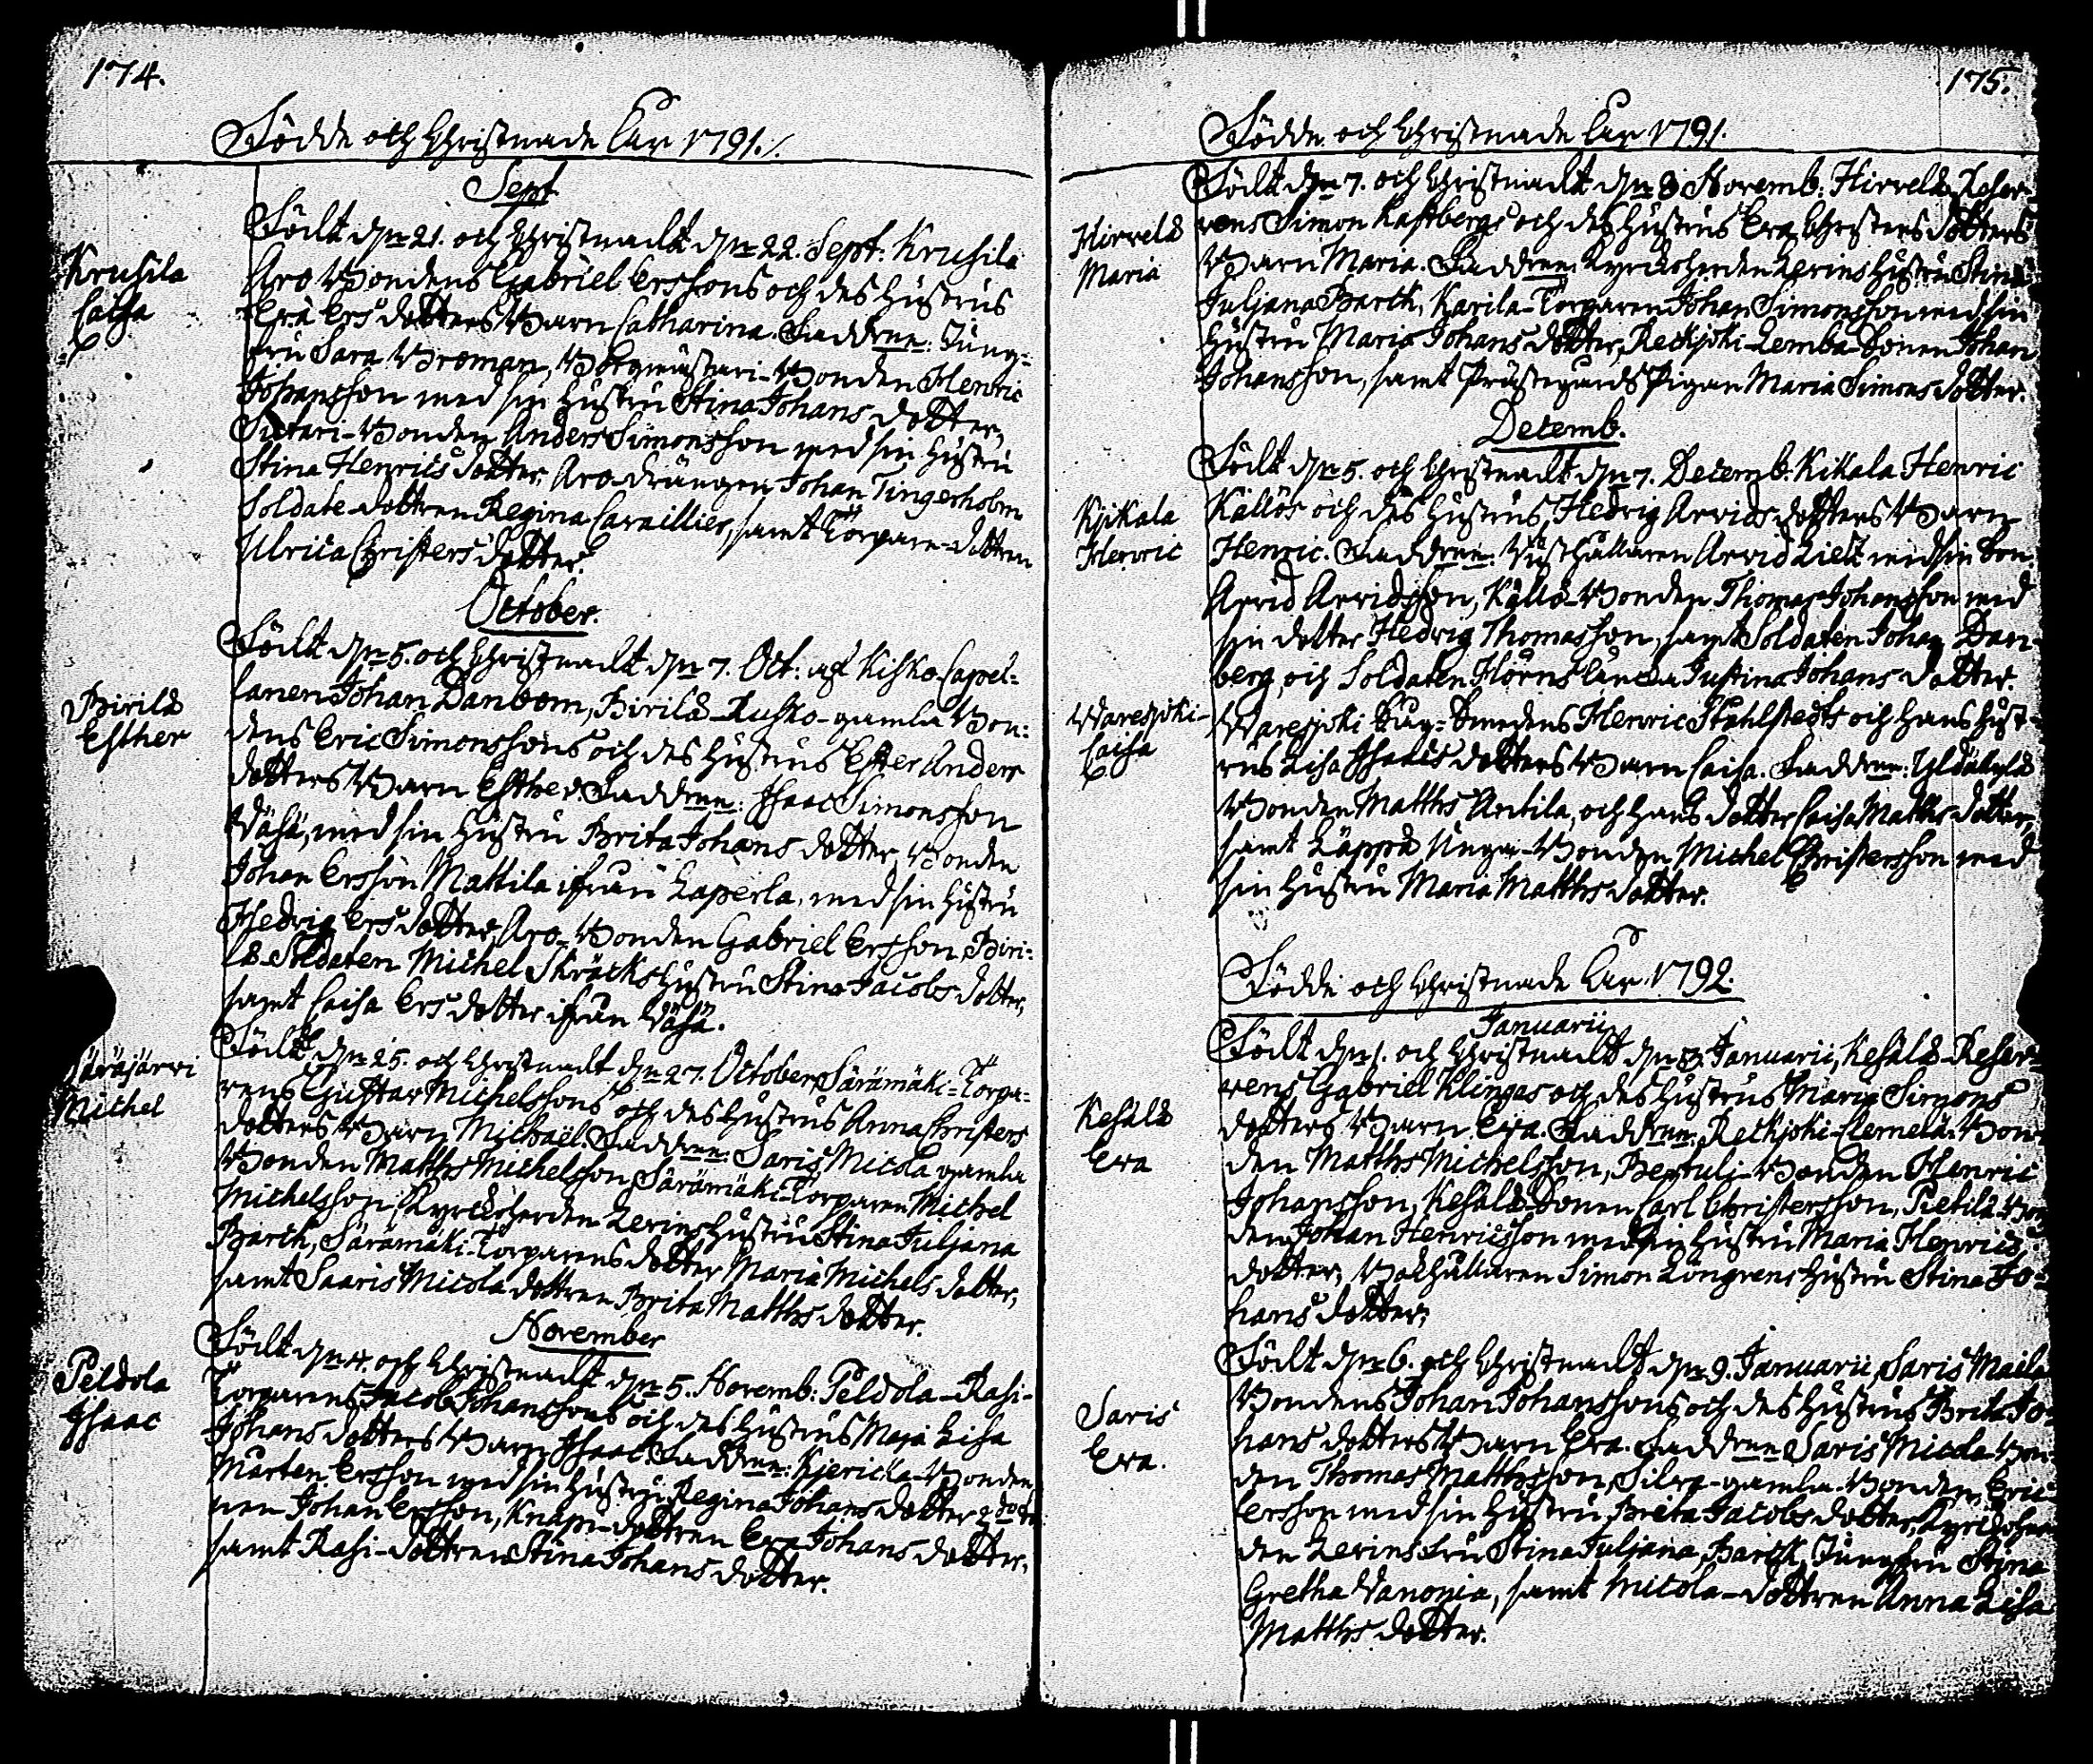 174.
Födde och Christnade Åhr 1791.
Sept
Krusila
Caisa
Födt d. 21. och Christnadt d. 22. Sept: Krusila
Aro Bondens Gabriel Erssons och des Hustrus
Eva Ers dotters Barn Catharina. Faddrene: Jung-
fru Sara Broman, Borgmästari-Bonden Henric
Johansson med sin Hustru Stina Johans dotter,
Sutari-Bonden Anders Simonsson med sin Hustru
Stina Henrics dotter, Aro-drängen Johan Tingerholm
Soldate-dottren Regina Cavaillier, samt Torpare-dottren
Ulrica Christers dotter.
October.
Birilä
Esther
Födt d. 5. och Christnadt d. 7. Oct: af Kisko Capel-
lanen Johan Danbom, Birilä-Rusko-gamla Bon-
dens Eric Simonssons och des Hustrus Ester Anders
dotters Barn Esther. Faddrene: Isaac Simonsson
Wähä, med sin Hustru Brita Johans dotter, Bonden
Johan Ersson Mattila ifrån Laperla, med sin Hustru
Hedvig Ers dotter, Aro-Bonden Gabriel Ersson, Biri-
lä-Soldaten Michel Skräcks Hustru Stina Jacobs dotter,
samt Caisa Ers dotter ifrån Wähä.
Säräjärvi
Michel
Födt d. 25. och Christnadt d. 27. October, Särämäki-Torpa-
rens Gustav Michelssons och des Hustrus Anna Christers
dotters Barn Michaël. Faddrene: Saris Micola gamla
Bonden Matths Michelsson, Särämäki-Torparen Michel
Michelsson, Kyrckoherden Levins Hustru Stina Juljana
Barck, Särämäki-Torparens dotter Maria Michels dotter,
samt Saaris Micola dottren Brita Matths dotter.
November
Peldola
Isaac
Födt d. 4. och Christnadt d. 5. Novemb: Peldola-Rasi-
Torparens Jacob Johanssons och des Hustrus Maja Lisa
Johans dotters Barn Isaac. Faddrene: Kjericka-Bonden
Mårten Ersson med sin Hustru Regina Johans dotter,
nen Johan Ersson, Knapi-dottren Eva Johans dotter,
samt Rasi-dottren Stina Johans dotter.
175.
Födde och Christnade Åhr 1791.
Hirvelä
Maria
Födt d. 7. och Christnadt d. 8 Novemb: Hirvelä Reser-
vens Simon Kastbergs och des Hustrus Eva Christers dotters
Barn Maria. Faddrene: Kyrckoherden Levins Hustru Stina
Juljana Barck, Karila-Torparen Johan Simonsson med sin
Hustru Maria Johans dotter, Reckjoki-Lemba-Sonen Johan
Johansson, samt Prästgårds Pigan Maria Simons dotter.
Decemb.
Kjikala
Henric
Födt d. 5. och Christnadt d. 7. Decemb. Kikala Henric
Källös och des Hustrus Hedvig Arvids dotters Barn
Henric. Faddrene: Rusthållaren Arvid Liek med sin Son
Arvid Arvidsson, Källö-Bonden Thomas Johansson med
sin dotter Hedvig Thomasson, samt Soldaten Johan Dan-
berg, och Soldaten Hörns Enka Justina Johans dotter.
Varesjoki
Caisa
Varesjoki Såg-Smedens Henric Stahlstedts och hans Hust-
rus Lisa Isaacs dotters Barn Caisa. Faddrene: Yldäkylä
Bonden Matths Antila, och hans dotter Caisa Matths dotter,
samt Läppä Unga-Bonden Michel Christersson med
sin Hustru Maria Matths dotter.
Födde och Christnade Åhr 1792.
Januarii
Kesälä
Eva
Födt d. 1. och Christnadt d. 3. Januarii, Kesälä-Reser-
vens Gabriel Klingas och des Hustrus Maria Simons
dotters Barn Eva. Faddrene: Reckjoki-Clemelä-Bon-
den Matths Michelsson, Bertulj-Bonden Henric
Johansson, Kesälä-Sonen Carl Christersson, Pietilä Bon
den Johan Henricsson med sin Hustru Maria Henrics
dotter, Bokhållaren Simon Löngrens Hustru Stina Jo-
hans dotter.
Saris
Eva.
Födt d. 6. och Christnadt d. 9. Januarii, Saris Maila
Bondens Johan Johanssons och des Hustrus Brita Jo-
hans dotters Barn Eva. Faddrene Saris Micola Bon-
den Thomas Matthsson, Silva-gamla-Bonden, Eric
Ersson med sin Hustru Brita Jacobs dotter, Kyrckoher
den Levins Fru Stina Juljana Barck, Jungfru Stina
Gretha Vanonia, samt Micola-dottren Anna Lisa
Matths dotter.